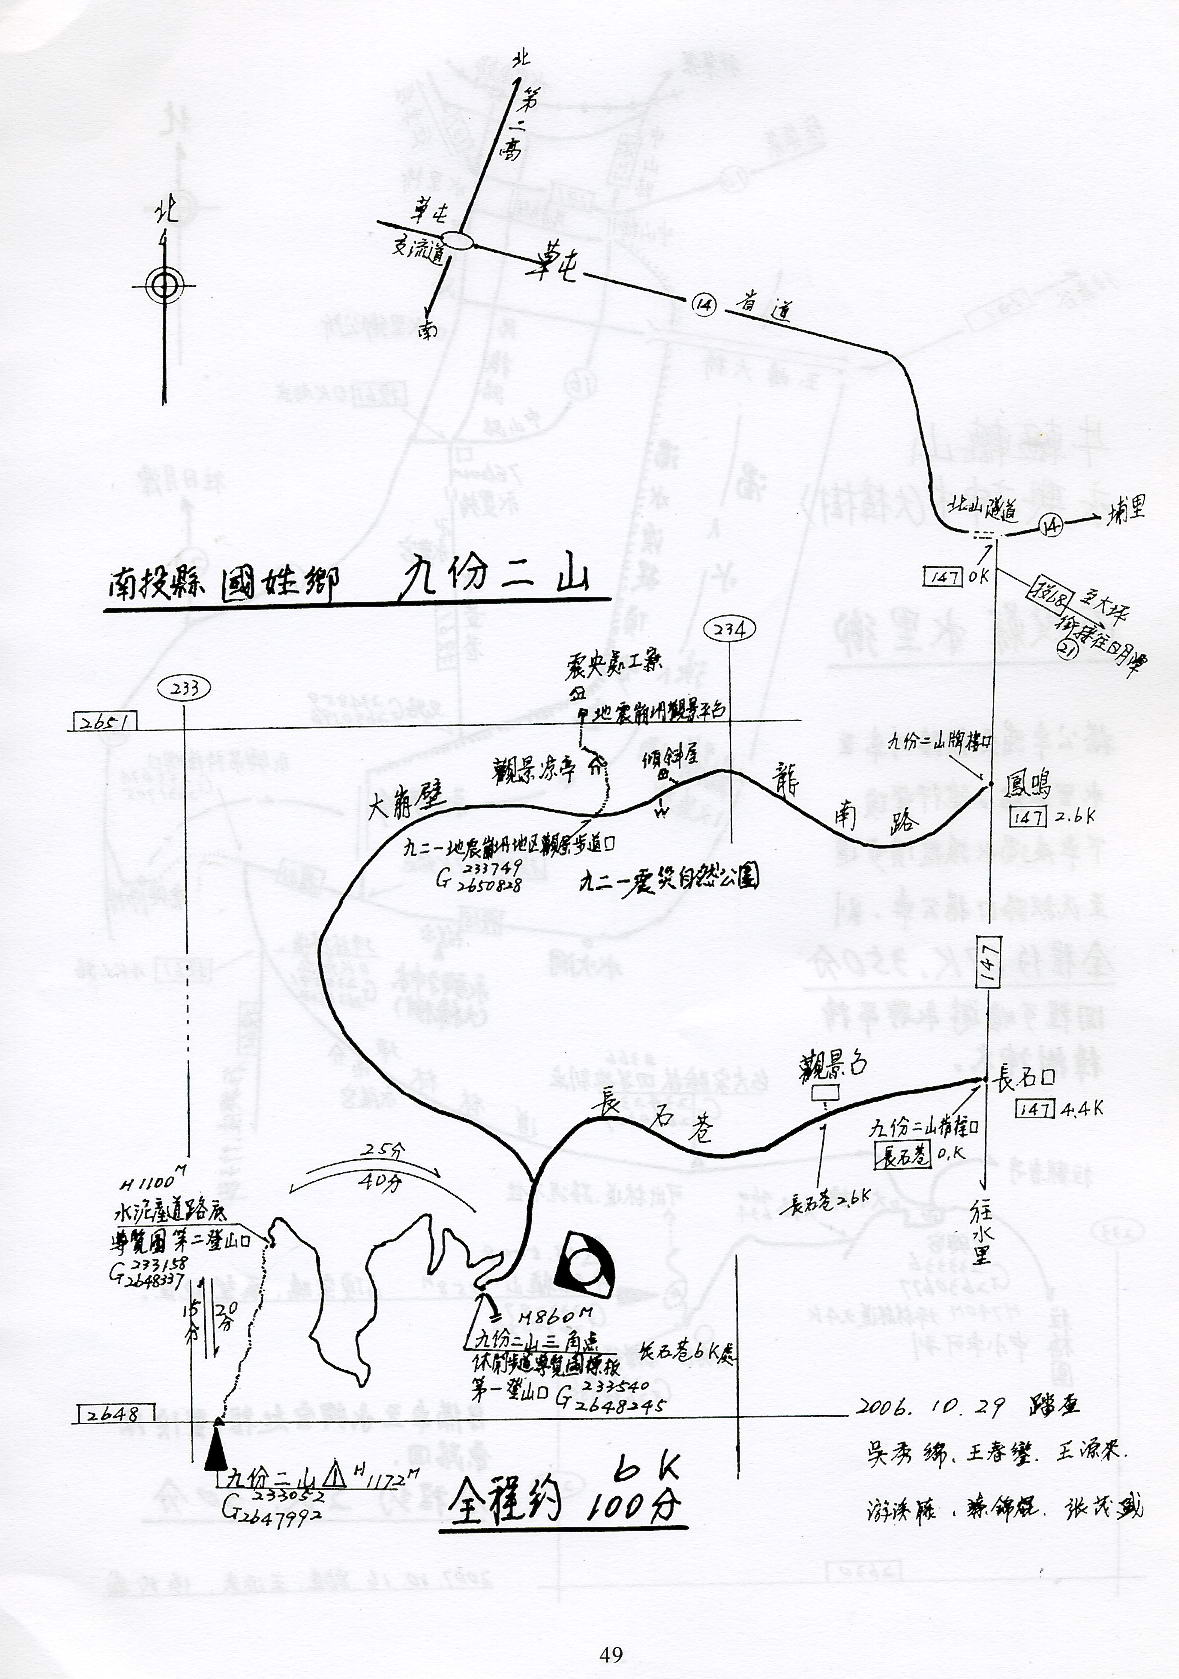 北
第二高
北
草屯
支流道
草屯
南
14
省道
北山隧道
14
埔里
147 0K
投68
至大坪
銜接往日月潭
21
南投縣 國姓鄉 九份二山
234
233
2651
震央處工寮
地震崩坍觀景平台
觀景涼亭
傾斜屋
九份二山牌樓口
大崩壁
龍南路
鳳鳴
147 2.6K
九二一地震崩坍地区觀景步道口
G 233749
2650828
九二一震災自然公園
147
觀景台
長石巷
長石口
147 4.4K
九份二山指標口
長石巷 0.K
長石巷2.6K
往水里
25分
40分
H1100M
水泥產道路底
導覽圖第二登山口
G 233158
2648337
15分
20分
H860M
九份二山三角点
休閒步道導覽圖標板
第一登山口 G 233540
2648245
長石巷6K處
2648
九份二山 H1172M
G 233052
2647992
全程約 6K
100分
2006. 10. 29 踏查
吳秀綿、王春鑾. 王源來.
49